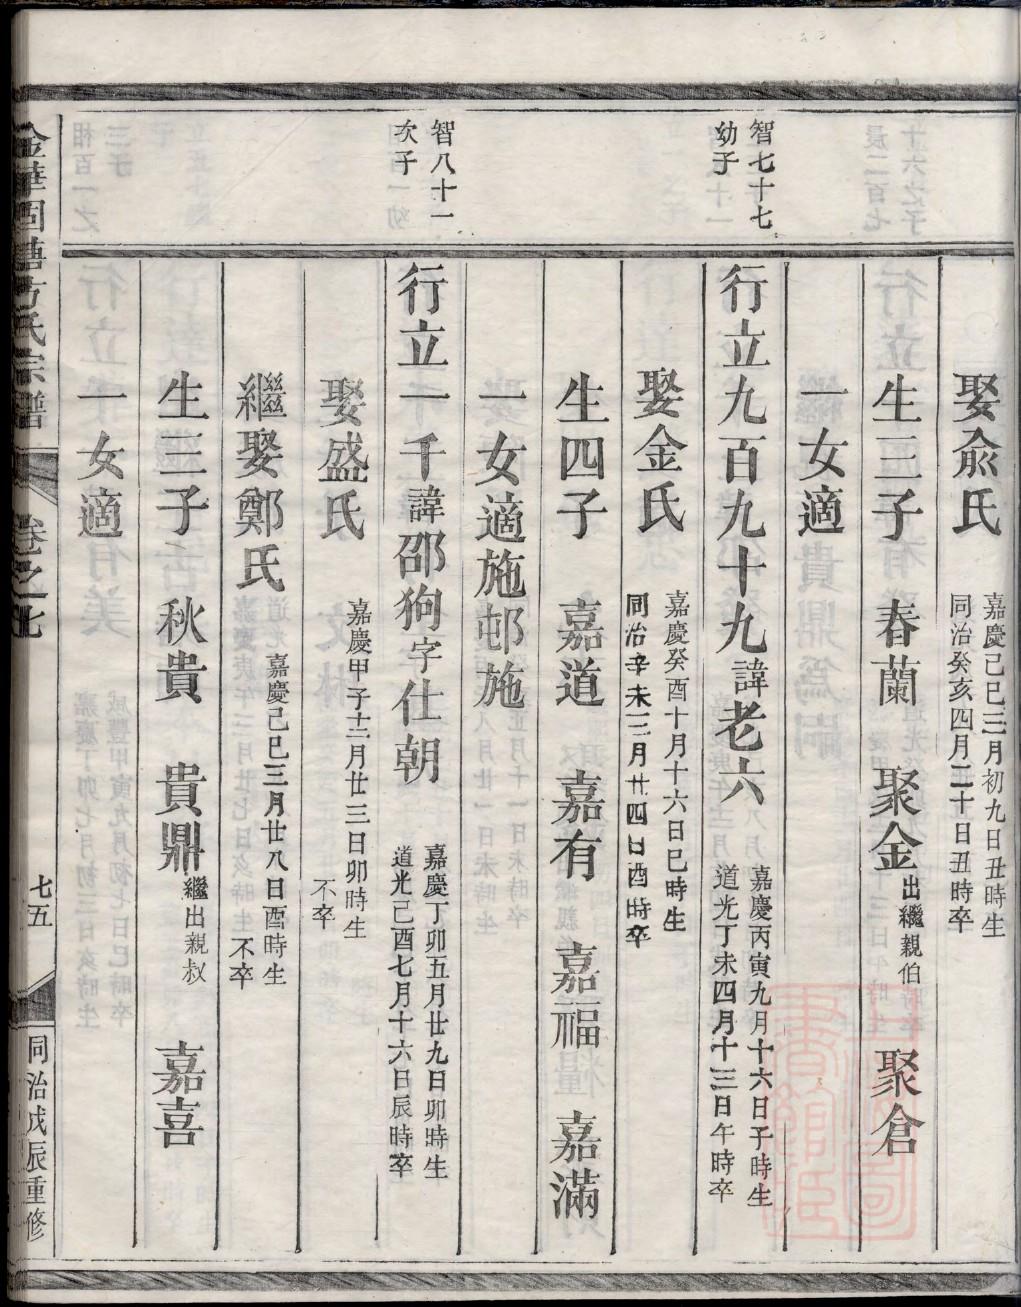 娶俞氏
嘉慶己巳三月初九日丑時生
同治癸亥四月二十日丑時卒
生三子　春蘭　聚金出繼親伯　聚倉
一女適
智七十七
幼子
行立九百九十九諱老六
嘉慶丙寅九月十六日子時生
道光丁未四月十三日午時卒
娶金氏
嘉慶癸酉十月十六日巳時生
同治辛未三月廿四日酉時卒
生四子　嘉道　嘉有　嘉福　嘉滿
一女適施邨施
智八十一
次子
行立一千諱邵狗字仕朝
嘉慶丁卯五月廿九日卯時生
道光己酉七月十六日辰時卒
娶盛氏
嘉慶甲子十二月廿三日卯時生
不卒
繼娶鄭氏
嘉慶己巳三月廿八日酉時生
不卒
生三子　秋貴　貴鼎繼出親叔　嘉喜
一女適
金華固塘方氏宗譜
卷之七
七五
同治戊辰重修